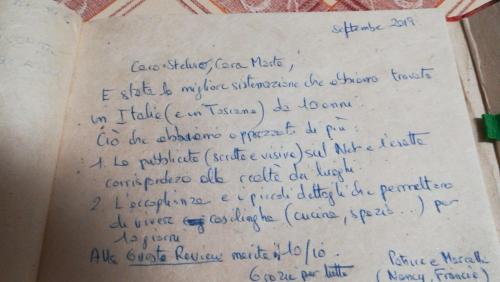 septembre 2019
Caro Stefano, Cara Marta,
E stata la migliore sistemazione che abbiamo trovata
in Italia (e in Toscana) da 10 anni.
Ciò che abbiamo apprezzato di più:
1. La pubblicità (scritta e visiva) sul Net e l'esatta
corrispondenza alla realtà dei luoghi
2 L'accoglienza e i piccoli dettagli che permettono
di vivere casalinghe (cucina, spazio...) per
10 giorni
Alla Guests Review merita il 10/10.
Grazie per tutto
Patrice e Marcelle
(Nancy, Francia)